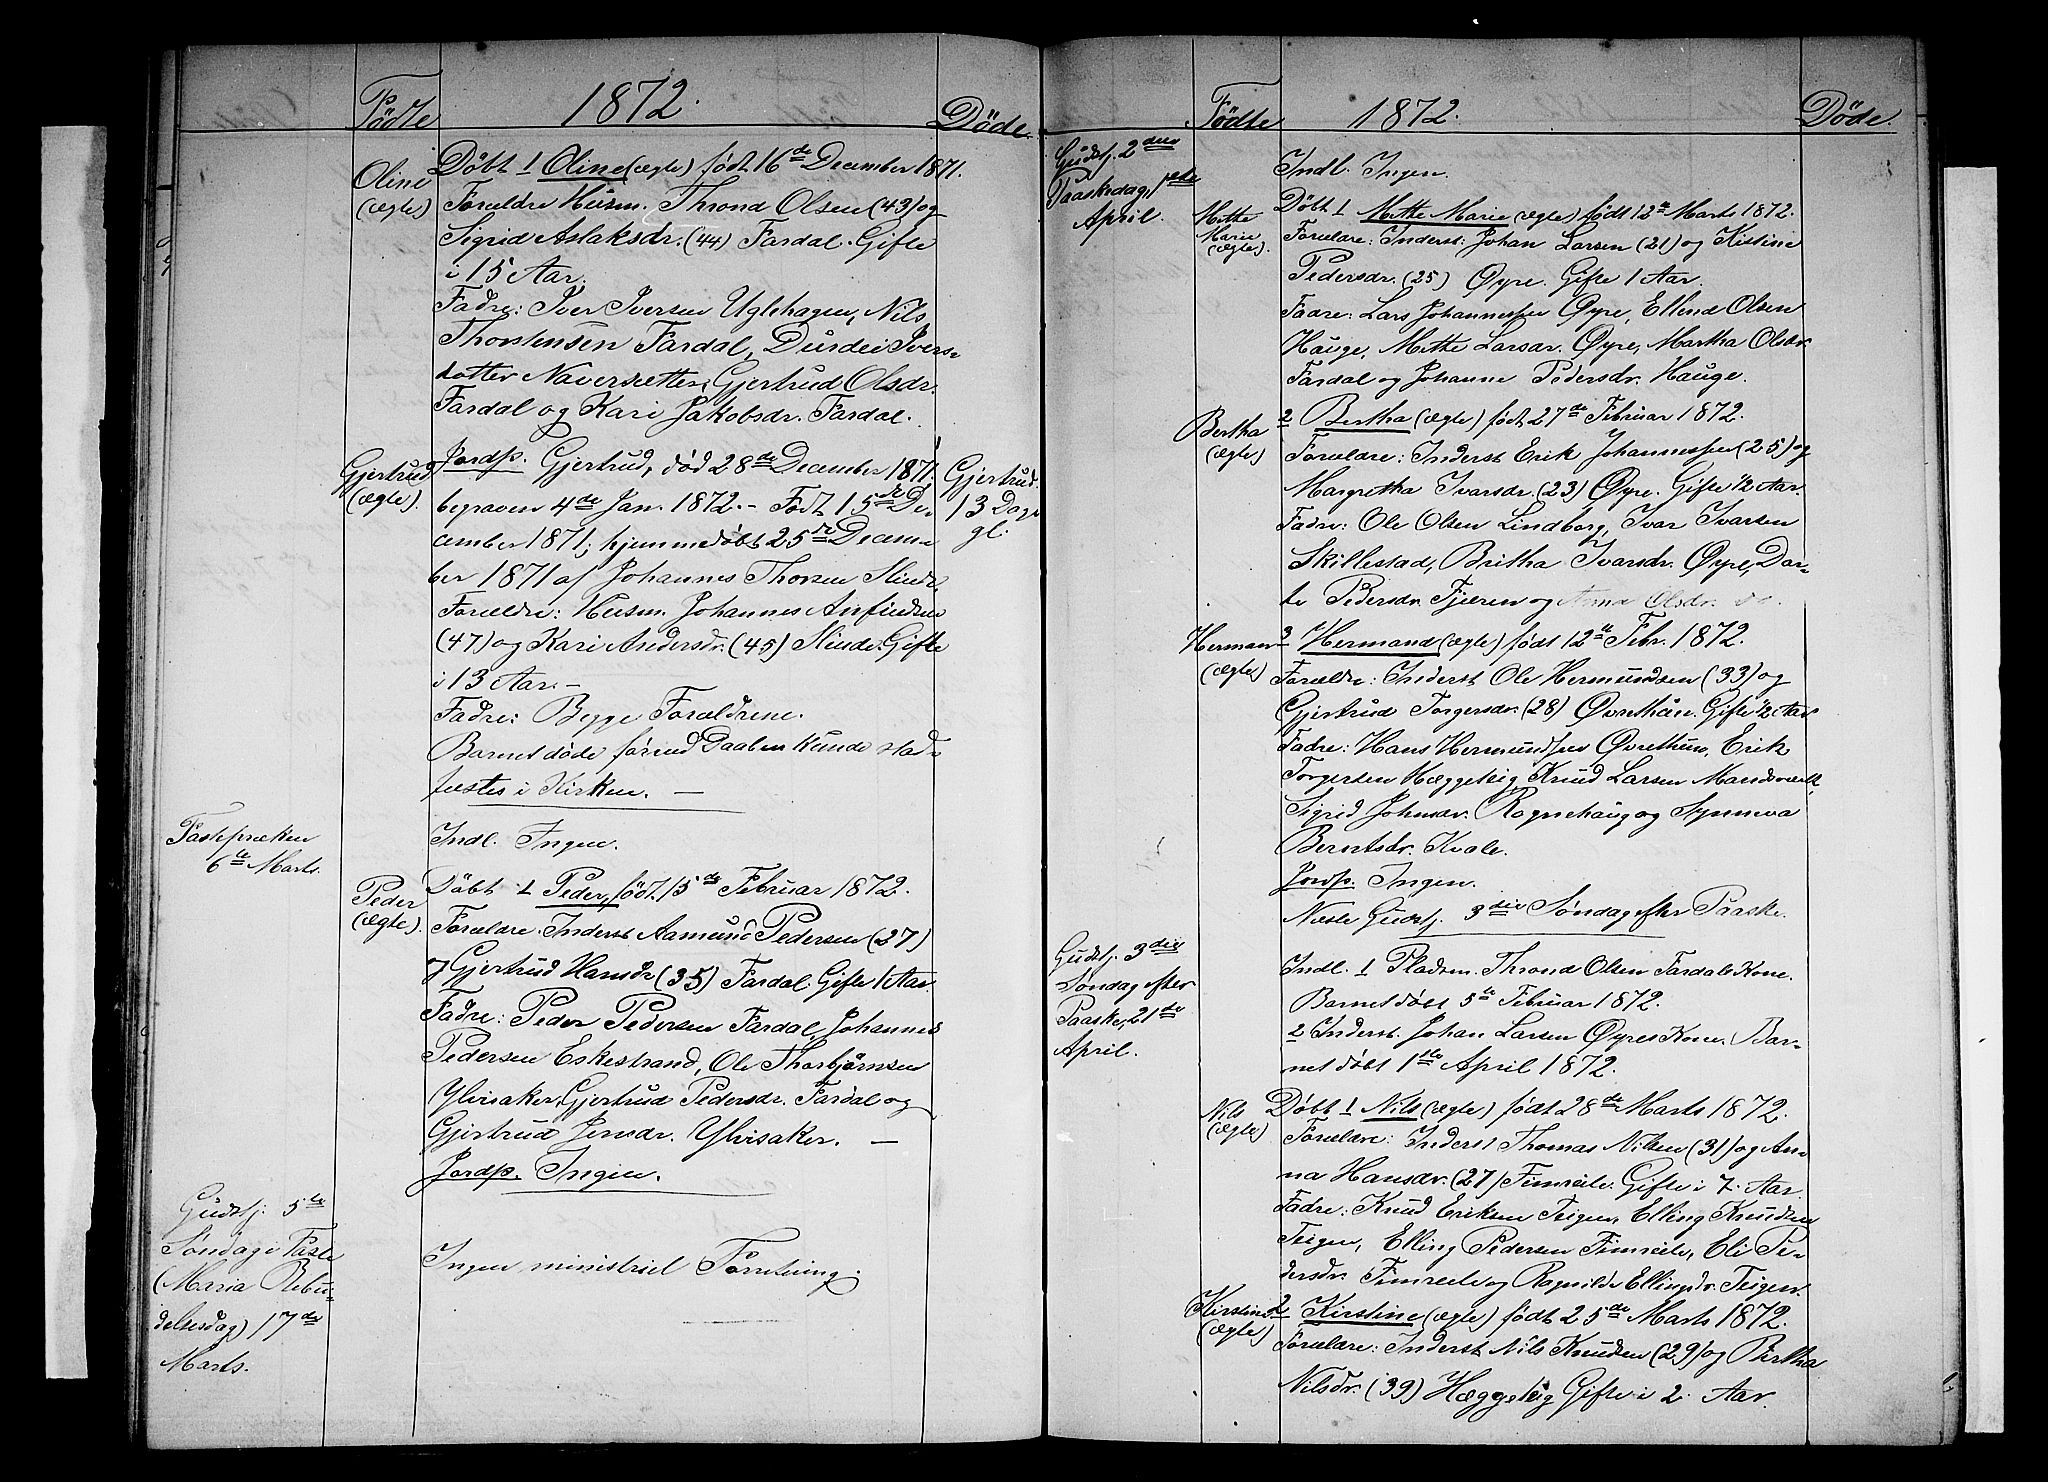 Födte
1872.
Döde
Oline
(ægte)
Döbt 1 Oline (ægte) født 16de December 1871.
Forældre Husm. Thrond Olsen (43) og
Sigrid Aslaksdr. (44) Fardal. Gifte
i 15 Aar.
Fadre: Iver Iversen Uglehagen, Nils
Thorstensen Fardal, Durdei Ivers-
datter Naversetter, Gjertrud Olsdr.
Fardal og Kari Jakobsdr. Fardal.
Gjertrud
(ægte).
Jordp. Gjertrud, død 28de December 1871.
begraven 4de Jan. 1872. - Født 15de De-
cember 1871, hjemmedøbt 25de Decem-
ber 1871 af Johannes Thorsen
Forældre: Husm. Johannes Anfindsen
(47) og Kari Andersdr. (45) Gifte
i 13 Aar. -
Fadre: Begge Forældrene.
Barnet døde førend Daaben kunde stad-
fæstes i Kirken. -
Gjertrud
13 Dage
gl.
Fastepræken
6te Marts.
Indl. Ingen.
Peder
(ægte).
Döbt 1 Peder, født 15de Februar 1872.
Forældre. Inderst Aamund Pedersen (27)
og Gjertrud Hansdr (35) Fardal. Gifte 1 Aar.
Fadre: Peder Pedersen Fardal, Johannes
Pedersen Eskestrand, Ole Thorbjørnsen
Ylvisaker, Gjertrud Pedersdr. Fardal og
Gjertrud Jensdr. Ylvisaker. -
Jordp. Ingen.
Gudstj. 5te
Søndag i Faste
(Maria Bebu-
delsesdag) 17de
Marts.
Ingen ministriel Forretning.
Födte
1872.
Döde.
Gudstj. 2den
Paaskedag, 1ste
April.
Indl. Ingen.
Mette
Marie
(ægte).
Döbt 1 Mette Marie (ægte) født 12te Marts 1872.
Forældre: Inderst: Johan Larsen (21) og Kistine
Pedersdr. (25) Øyre. Gifte 1 Aar.
Fadre: Lars Johannessen Øyre, Ellend Olsen
Hauge, Mette Larsdr. Øyre, Martha Olsdr.
Fardal og Johanne Pedersdr. Hauge.
Bertha
(ægte)
2 Bertha (ægte) født 27de Februar 1872.
Forældre: Inderst Erik Johannessen (25) og
Margretha Ivarsdr. (23) Øyre. Gifte 1/2 Aar.
Fadre: Ole Olsen Lindborg, Ivar Ivarsen
Skillestad, Britha Ivarsdr. Øyre, Dor-
te Pedersdr. Fjæren og Anna Olsdr. do.
Herman
(ægte)
3 Hermand (ægte) født 12te Febr. 1872.
Forældre: Inderst Ole Hermundsen (33) og
Gjertrud Torgersdr. (28) Øvrethun. Gifte 1/2 Aar
Fadre: Hans Hermundssen Øvrethun, Erik
Torgersen Hæggelvig, Knud Larsen
Sigrid Johnsdr. Ragnehaug og Synneva
Berntsdr. Kvale.
Jordp. Ingen.
Næste Gudstj. 3die Søndag efter Paaske.
Gudstj. 3die
Søndag efter
Paaske, 21de
April.
Indl. 1 Pladsm. Thrond Olsen Fardals Kone.
Barnet døbt 5te Februar 1872.
2 Inderst. Johan Larsen Øyres Kone. Bar-
net døbt 1ste April 1872.
Nils
(ægte)
Döbt 1 Nils (ægte) født 28de Marts 1872.
Forældre: Inderst Thomas Nilsen (31) og An-
na Hansdr. (27) Fimreite. Gifte i 7 Aar.
Fadre: Knud Eriksen Teigen, Elling Knudsen
Teigen, Elling Pedersen Fimreite, Eli Pe-
dersdr. Fimreite og Ragnilde Ellingsdr. Teigen.
Kirstine
(ægte)
2 Kirstine (ægte) født 25de Marts 1872.
Forældre: Inderst Nils Knudsen (29) og Bertha
Nilsdr. (39) Hæggelvig Gifte i 2 Aar.